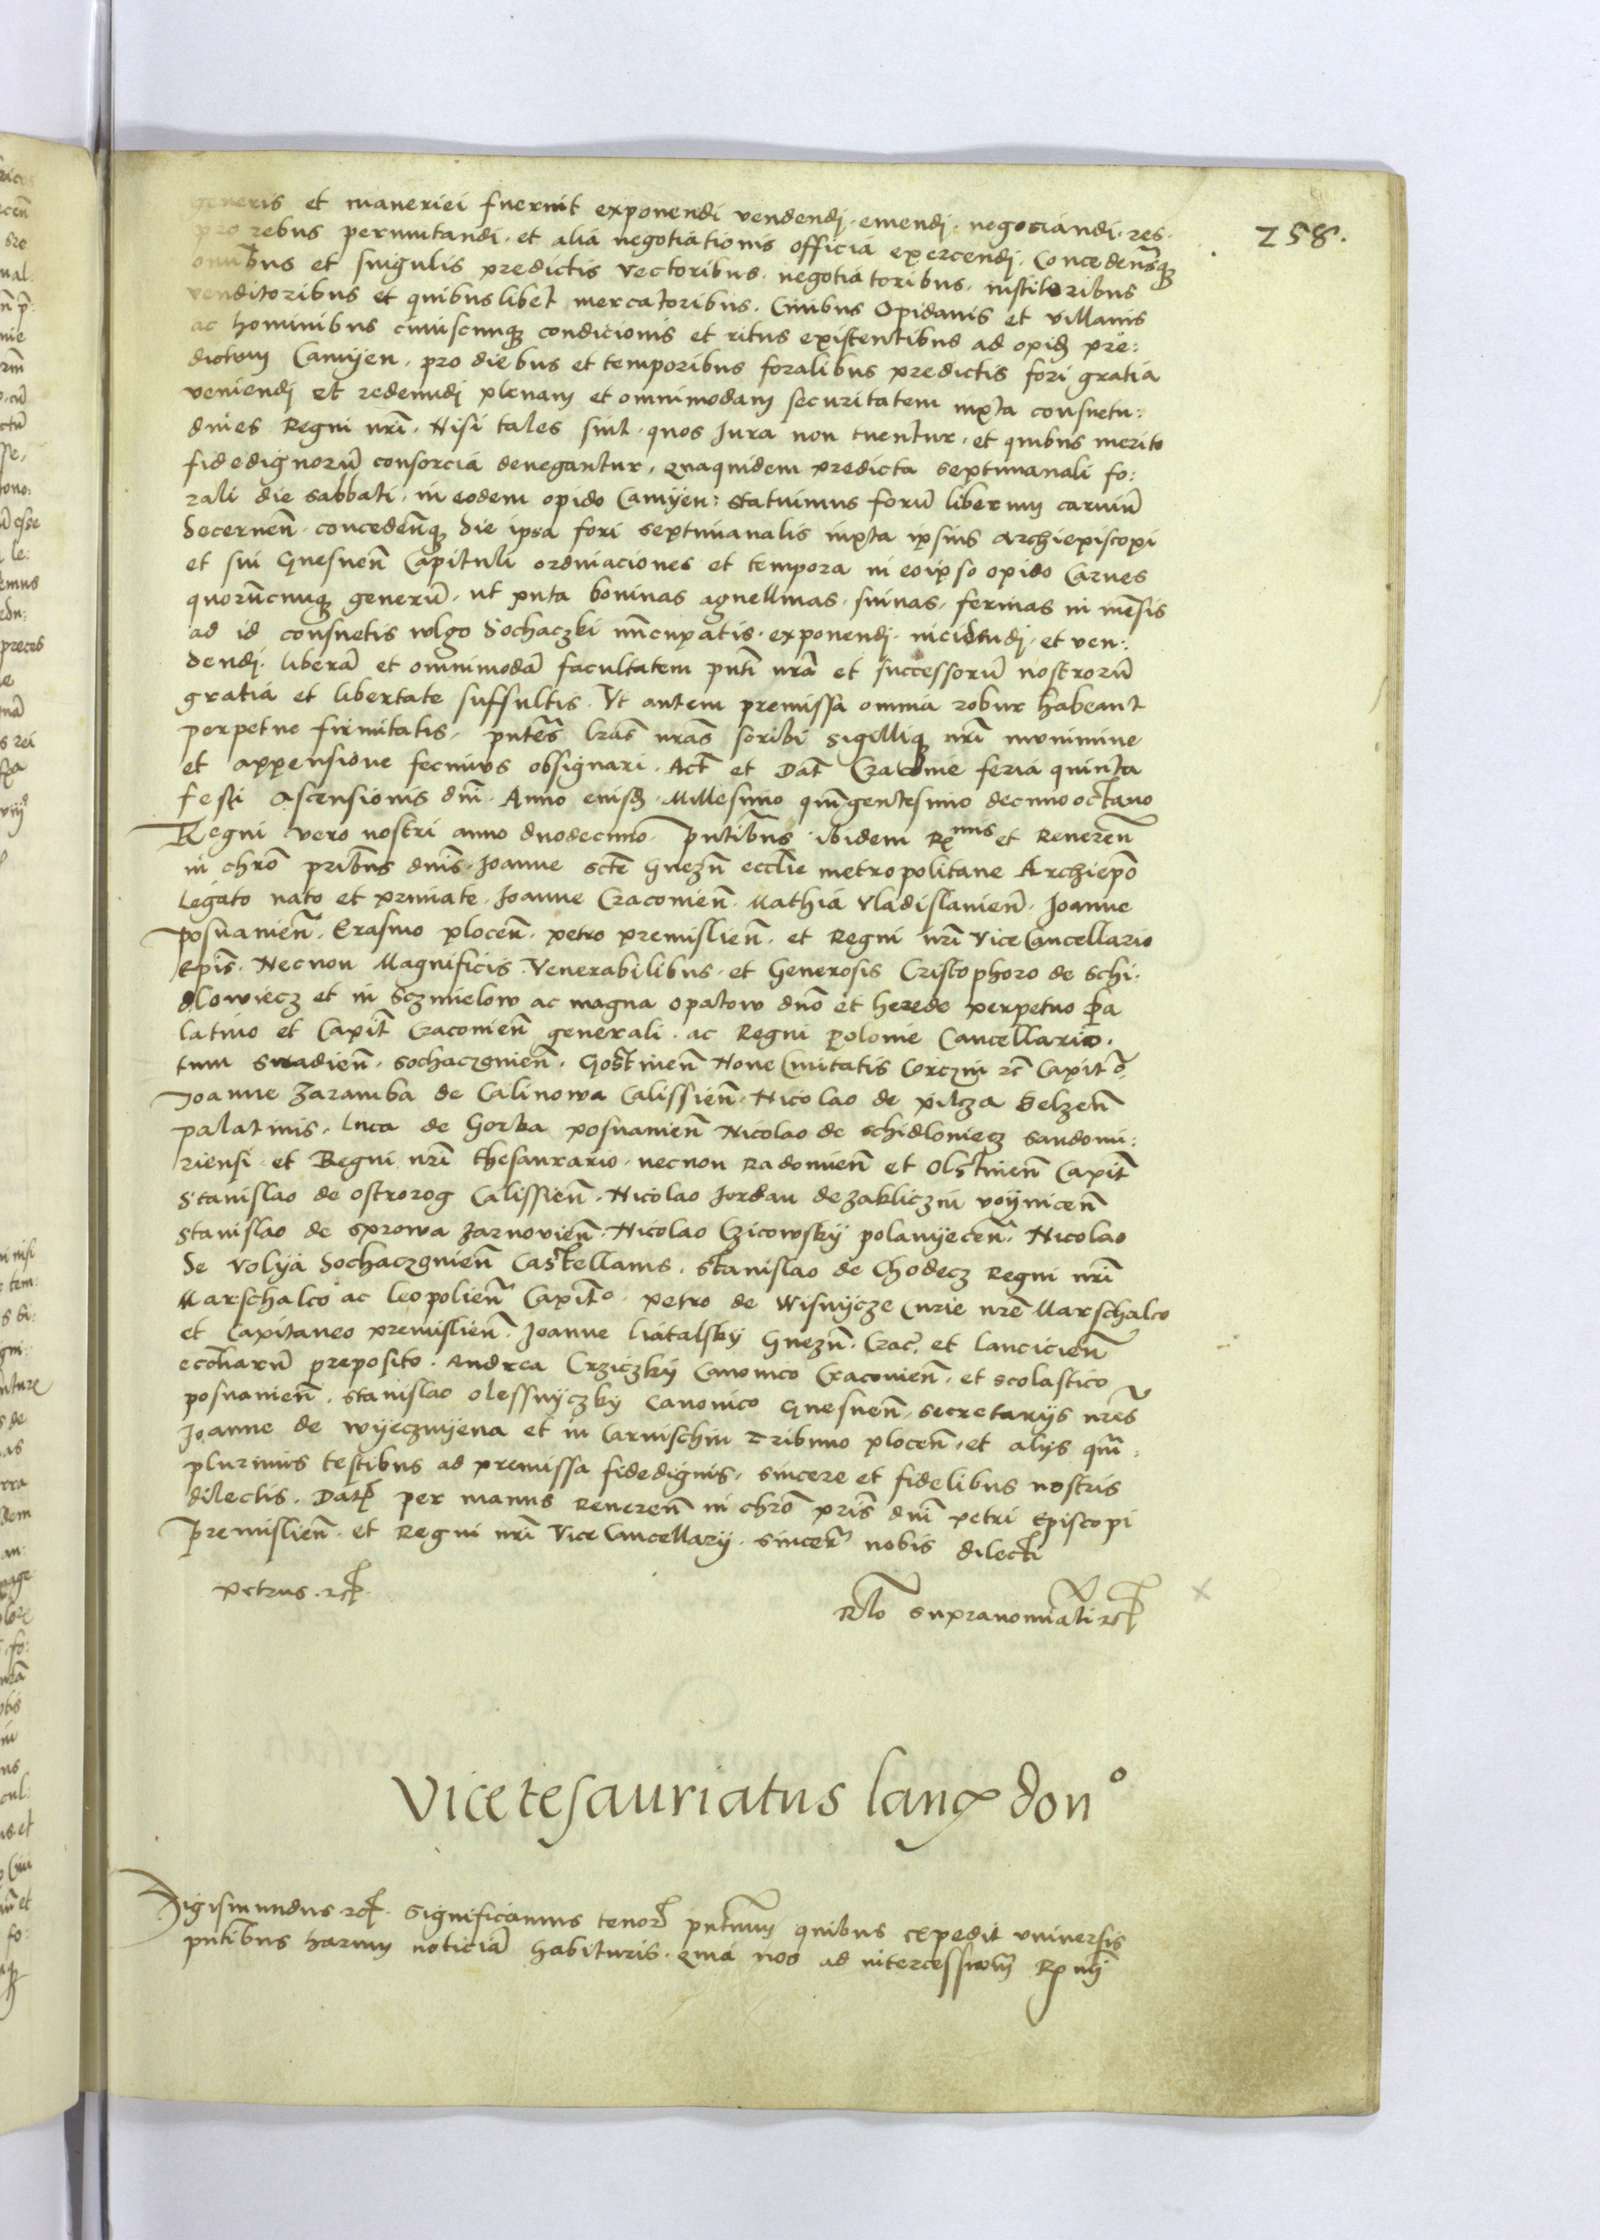 258.
generis et maneriei fuerint exponendi vendendj. emendj. negociandi. res.
pro rebus permutandi. et alia negotiationis officia exercendj. Concedentesque
omnibus et singulis predictis vectoribus. negotiatoribus. institoribus
venditoribus et quibuslibet mercatoribus. Civibus Opidanis et villanis
ac hominibus cuiuscunque condicionis et ritus existentibus ad opidum pre:
dictum Camyen. pro diebus et temporibus foralibus predictis fori gratia
veniendj et redeundj plenam et omnimodam securitatem iuxta consuetu:
dines Regni nri. Nisi tales sint. quos Jura non tuentur. et quibus merito
fidedignorū consorcia denegantur. quaquidem predicta septimanali fo:
rali die sabbati. in eodem opido Camyen: statuimus forū liberum carniū
Decernen̄. conceden̄que die ipsa fori septimanalis iuxta ipsius Archiepiscopi
et sui Gnesnen̄ Capituli ordinaciones et tempora in eoipso opido Carnes
quorūcunque generū. ut puta bovinas agnellinas. suinas. ferinas in mēsis
ad id consuetis wlgo Sochaczki nūcupatis. exponendj. incidendj. et ven:
dendj. liberā et omnimodā facultatem pn̄ti nrā et successorū nostrorū
gratia et libertate suffultis. Ut autem premissa omnia robur habeant
perpetue firmitatis. pn̄tēs lrās nrās scribi sigillique nrī munimine
et appensione fecimus obsignari. Act̄ et Dat̄ Cracovie feria quinta
festi Ascensionis dnī. Anno eiusdem. Millesimo quīgentesimo decimooctavo
Regni vero nostri anno duodecimo. pn̄tibus ibidem Rmis et Reveren̄
in chrō pribus dnis. Joanne scte Gnezn̄ ecclie metropolitane Archiepō
Legato nato et primate. Joanne Cracovien̄. Mathia Vladislavien̄. Joanne
posnanien̄. Erasmo plocen̄. petro premislien̄. et Regni nrī Vicecancellario
Epīs. Necnon Magnificis. Venerabilibus. et Generosis Cristophoro de Schi:
dlowiecz et in Sczmielow ac magna opatow dnō et herede perpetuo pa
latino et Capit̄ Cracovien̄ generali. ac Regni polonie Cancellario.
tum Siradien̄. sochaczovien̄. Gostinen̄ Nove Civitatis Corczin rc̄ Capito
Joanne Zaramba de Calinowa Calissien̄. Nicolao de pilcza Belzen̄
palatinis. Luca de Gorka posnanien̄ Nicolao de schidloviecz sandomi:
riensi. et Regni nrī thesaurario. necnon Radomien̄ et Olstinen̄ Capit̄
Stanislao de ostrorog Calissien̄. Nicolao Jordan de Zakliczin voynicen̄
Stanislao de sprowa Zarnovien̄. Nicolao Czicowsky polanyecen̄. Nicolao
de Volya Sochaczovien̄ Castellanis. Stanislao de Chodecz Regni nrī
Marschalco ac Leopolien̄ Capito. petro de Wisnycze Curie nrē Marschalco
et Capitaneo premislien̄. Joanne Liatalsky Gnezn̄. Crac̄. et Lancicien̄
eccliarū preposito. Andrea Crziczky canonico Cracovien̄. et scolastico
posnanien̄. Stanislao Olessnyczky Canonico Gnesnen̄. secretarijs nrīs
Joanne de wyeczwyena et in Carnischin Tribuno plocen̄. et alijs quā:
plurimis testibus ad premissa fidedignis. sincere et fidelibus nostris
dilectis. Dat̄ per manus Reveren̄ in chrō prīs dnī petri Episcopi
premislien̄. et Regni nrī Vice Cancellarij. sincere nobis dilecti
petrus. rc̄
Rlo supranominati rc̄
Vicetesauriatus lanx dono
Sigismundus. rc̄. Significamus tenore pn̄tium quibus expedit universis
pn̄tibus harum noticiā habituris. quia nos ad intercessionem Rmi